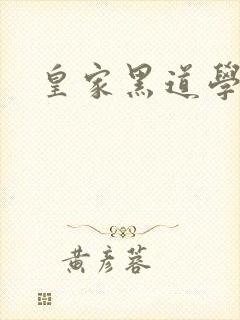 皇家黑道學
黃彥蓉